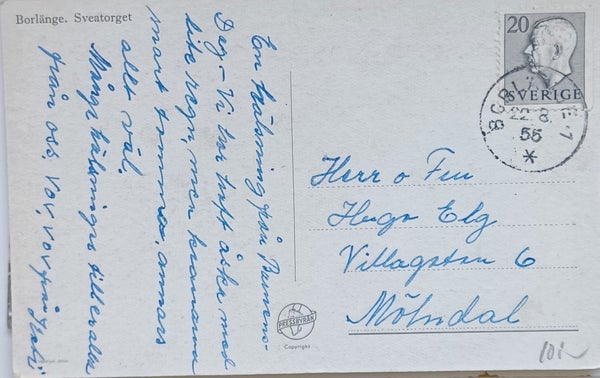 Borlänge. Sveatorget
En hälsning från
Dag - Vi har haft åska med
lite regn, men kronorna
snart tomma, annars
allt väl.
Många hälsningar till eralla
från oss. Vov, vov från
20
SVERIGE
BORLÄNGE 1
22. 8.
55
Herr o Fru
Hugo Elg
Villagatan 6
Mölndal
PRESSBYRÅN
Copyright
10:-